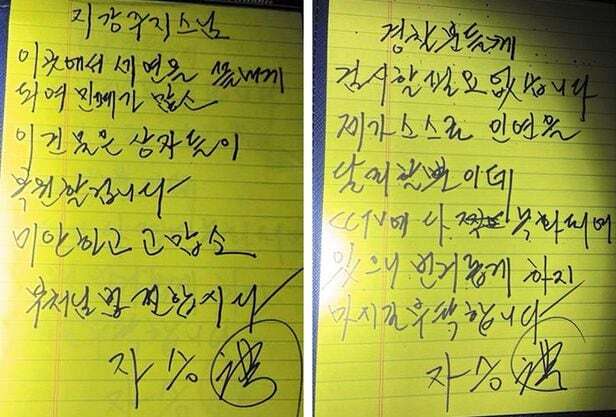 지강주지스님
이곳에서 세연을 끝내게
되여 민폐가 많소
이 건물은 상자들이
복원할겁니다
미안하고 고맙소
부처님법 전합시다
자승
경찰분들께
검시할 필요없습니다
제가 스스로 인연을
달리할뿐이데
CCTV에 다 녹화되여
있으니 번거롭게 하지
마시길 부탁합니다
자승